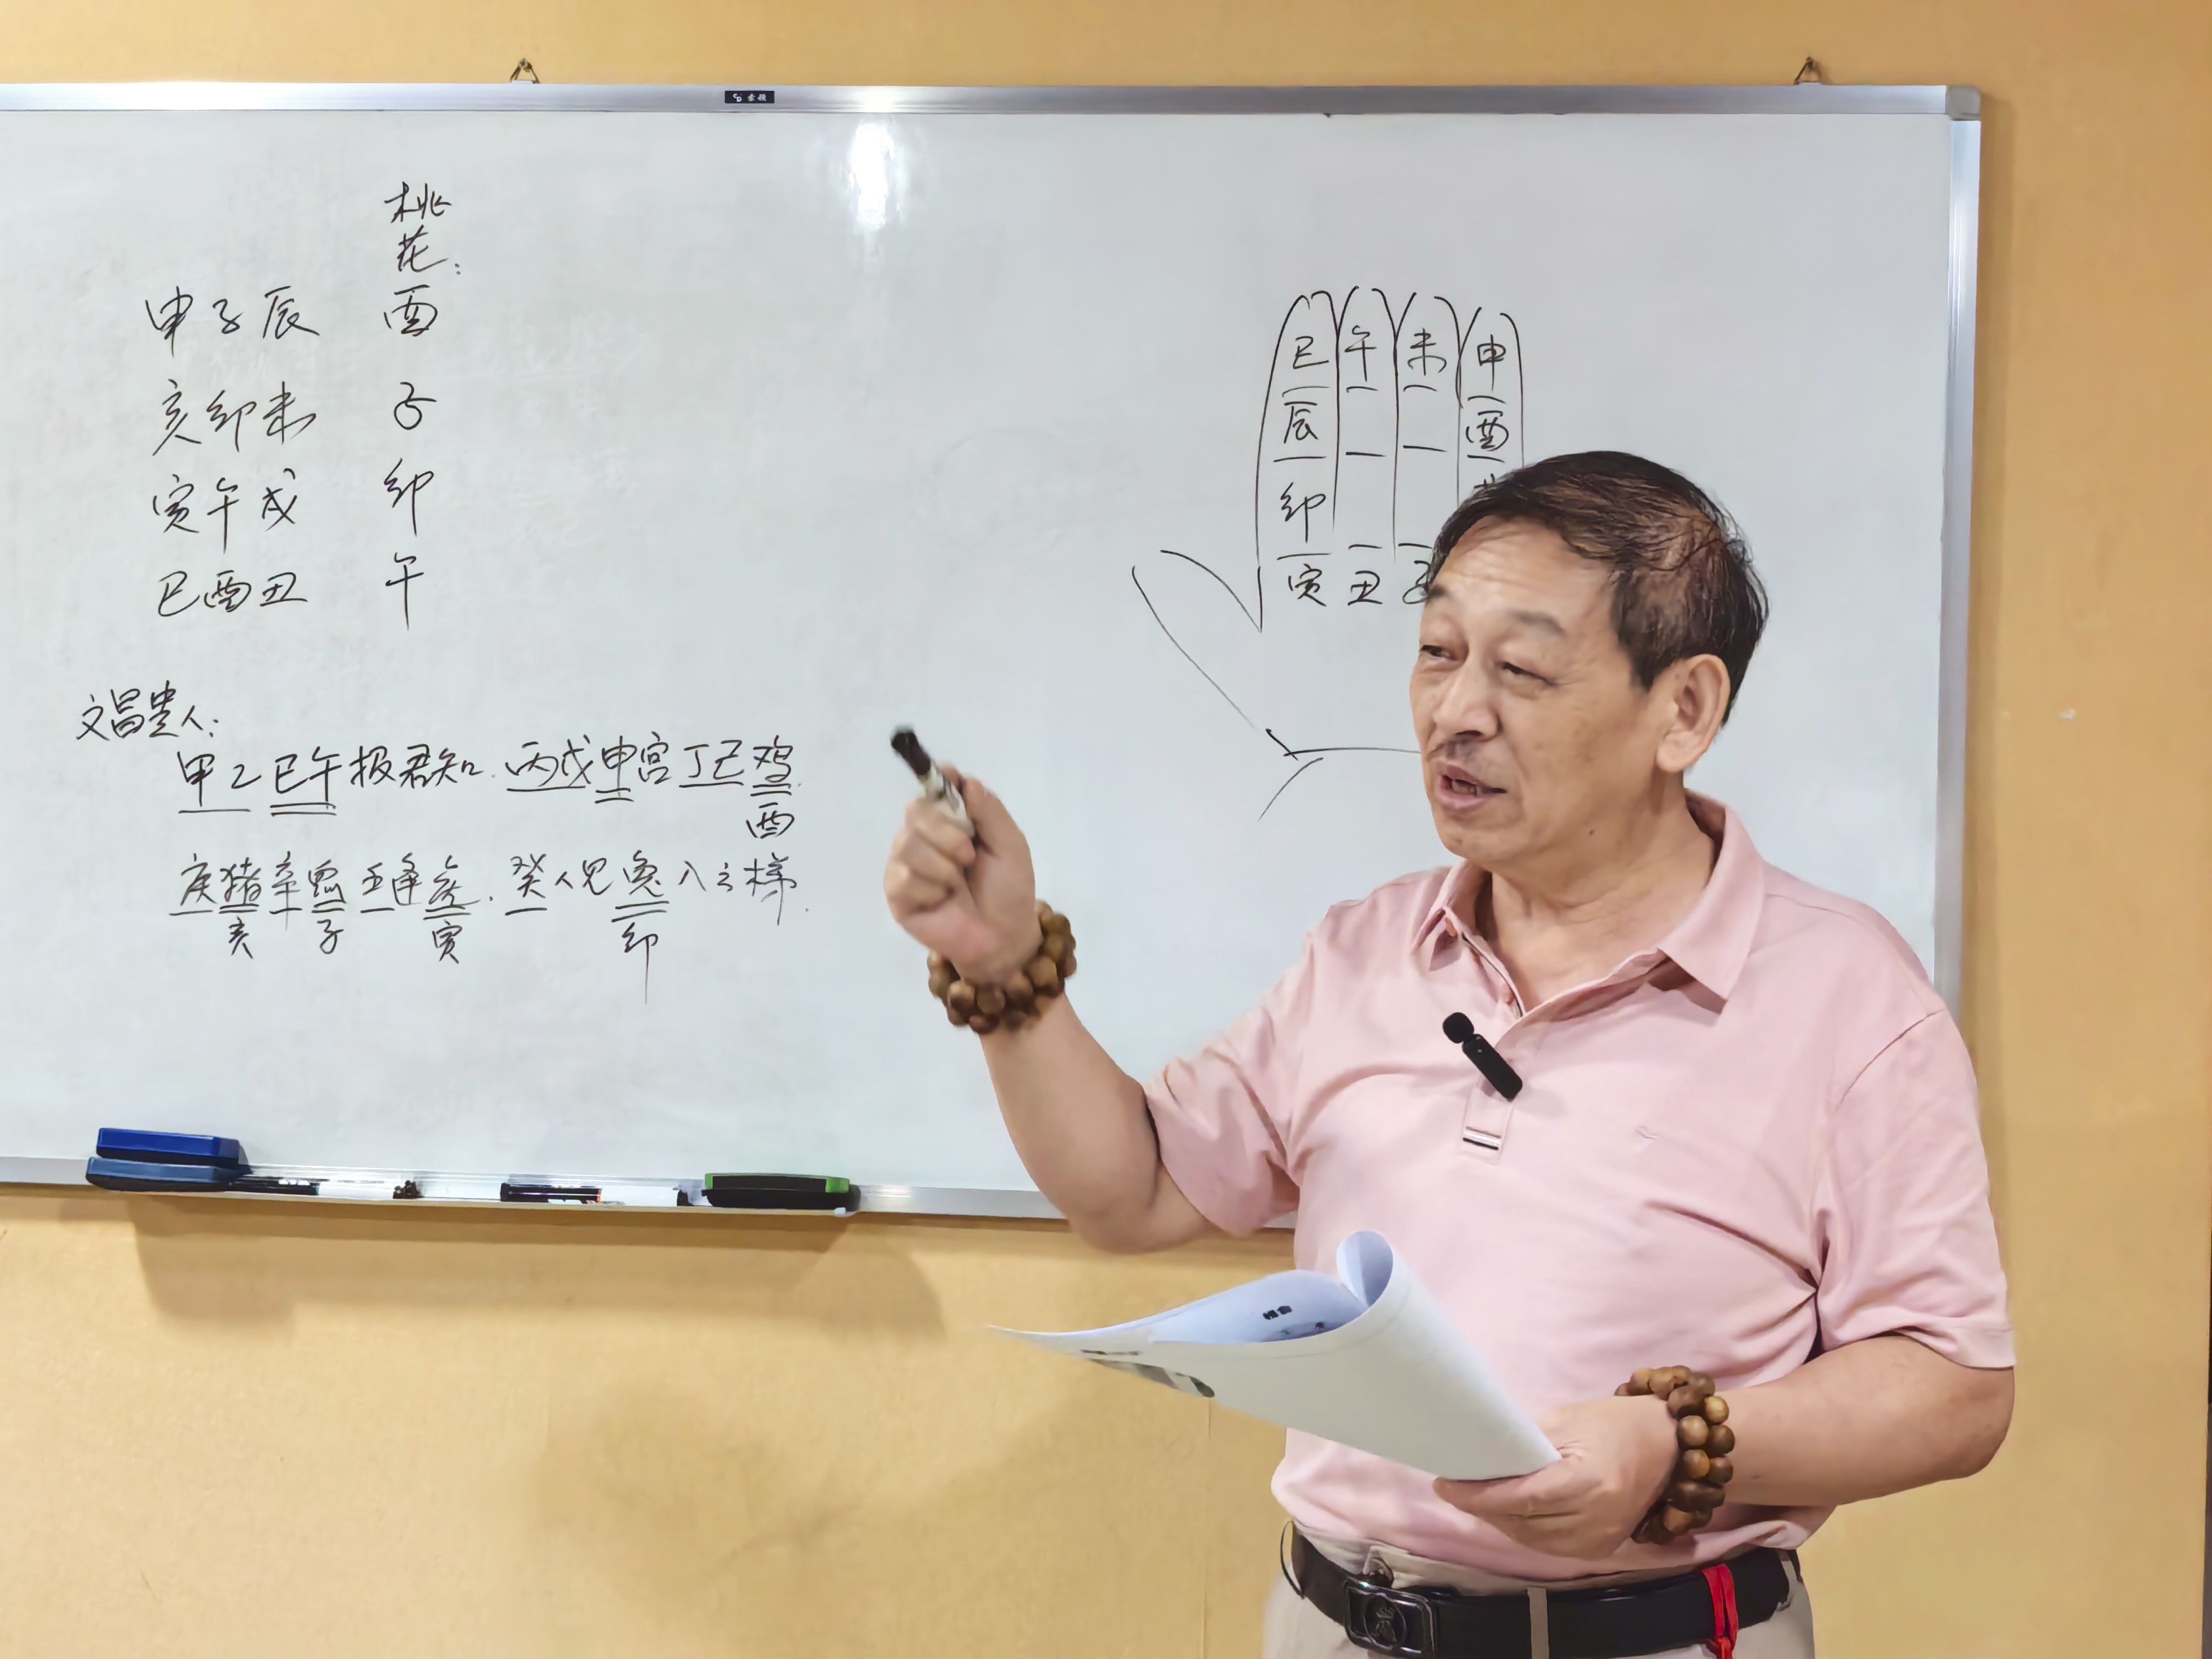 桃
花:
申子辰 酉
亥卯未 子
寅午戌 卯
巳酉丑 午
文昌贵人:
甲乙巳午报君知.丙戊申宫丁己鸡.
酉
庚猪辛鼠壬逢虎.癸人见兔入云梯.
亥 子 寅 卯
巳 午 未 申
辰 酉
卯
寅 丑